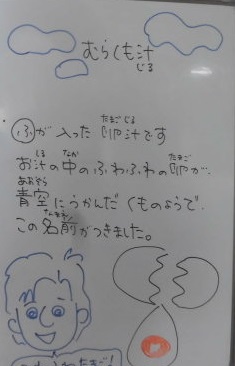 むらくも汁
じる
たまごじる
ふが入った卵汁です
しる なか たまご
お汁の中のふわふわの卵が、
あおぞら
青空にうかんだくものようで、
なまえ
この名前がつきました。
たまご！